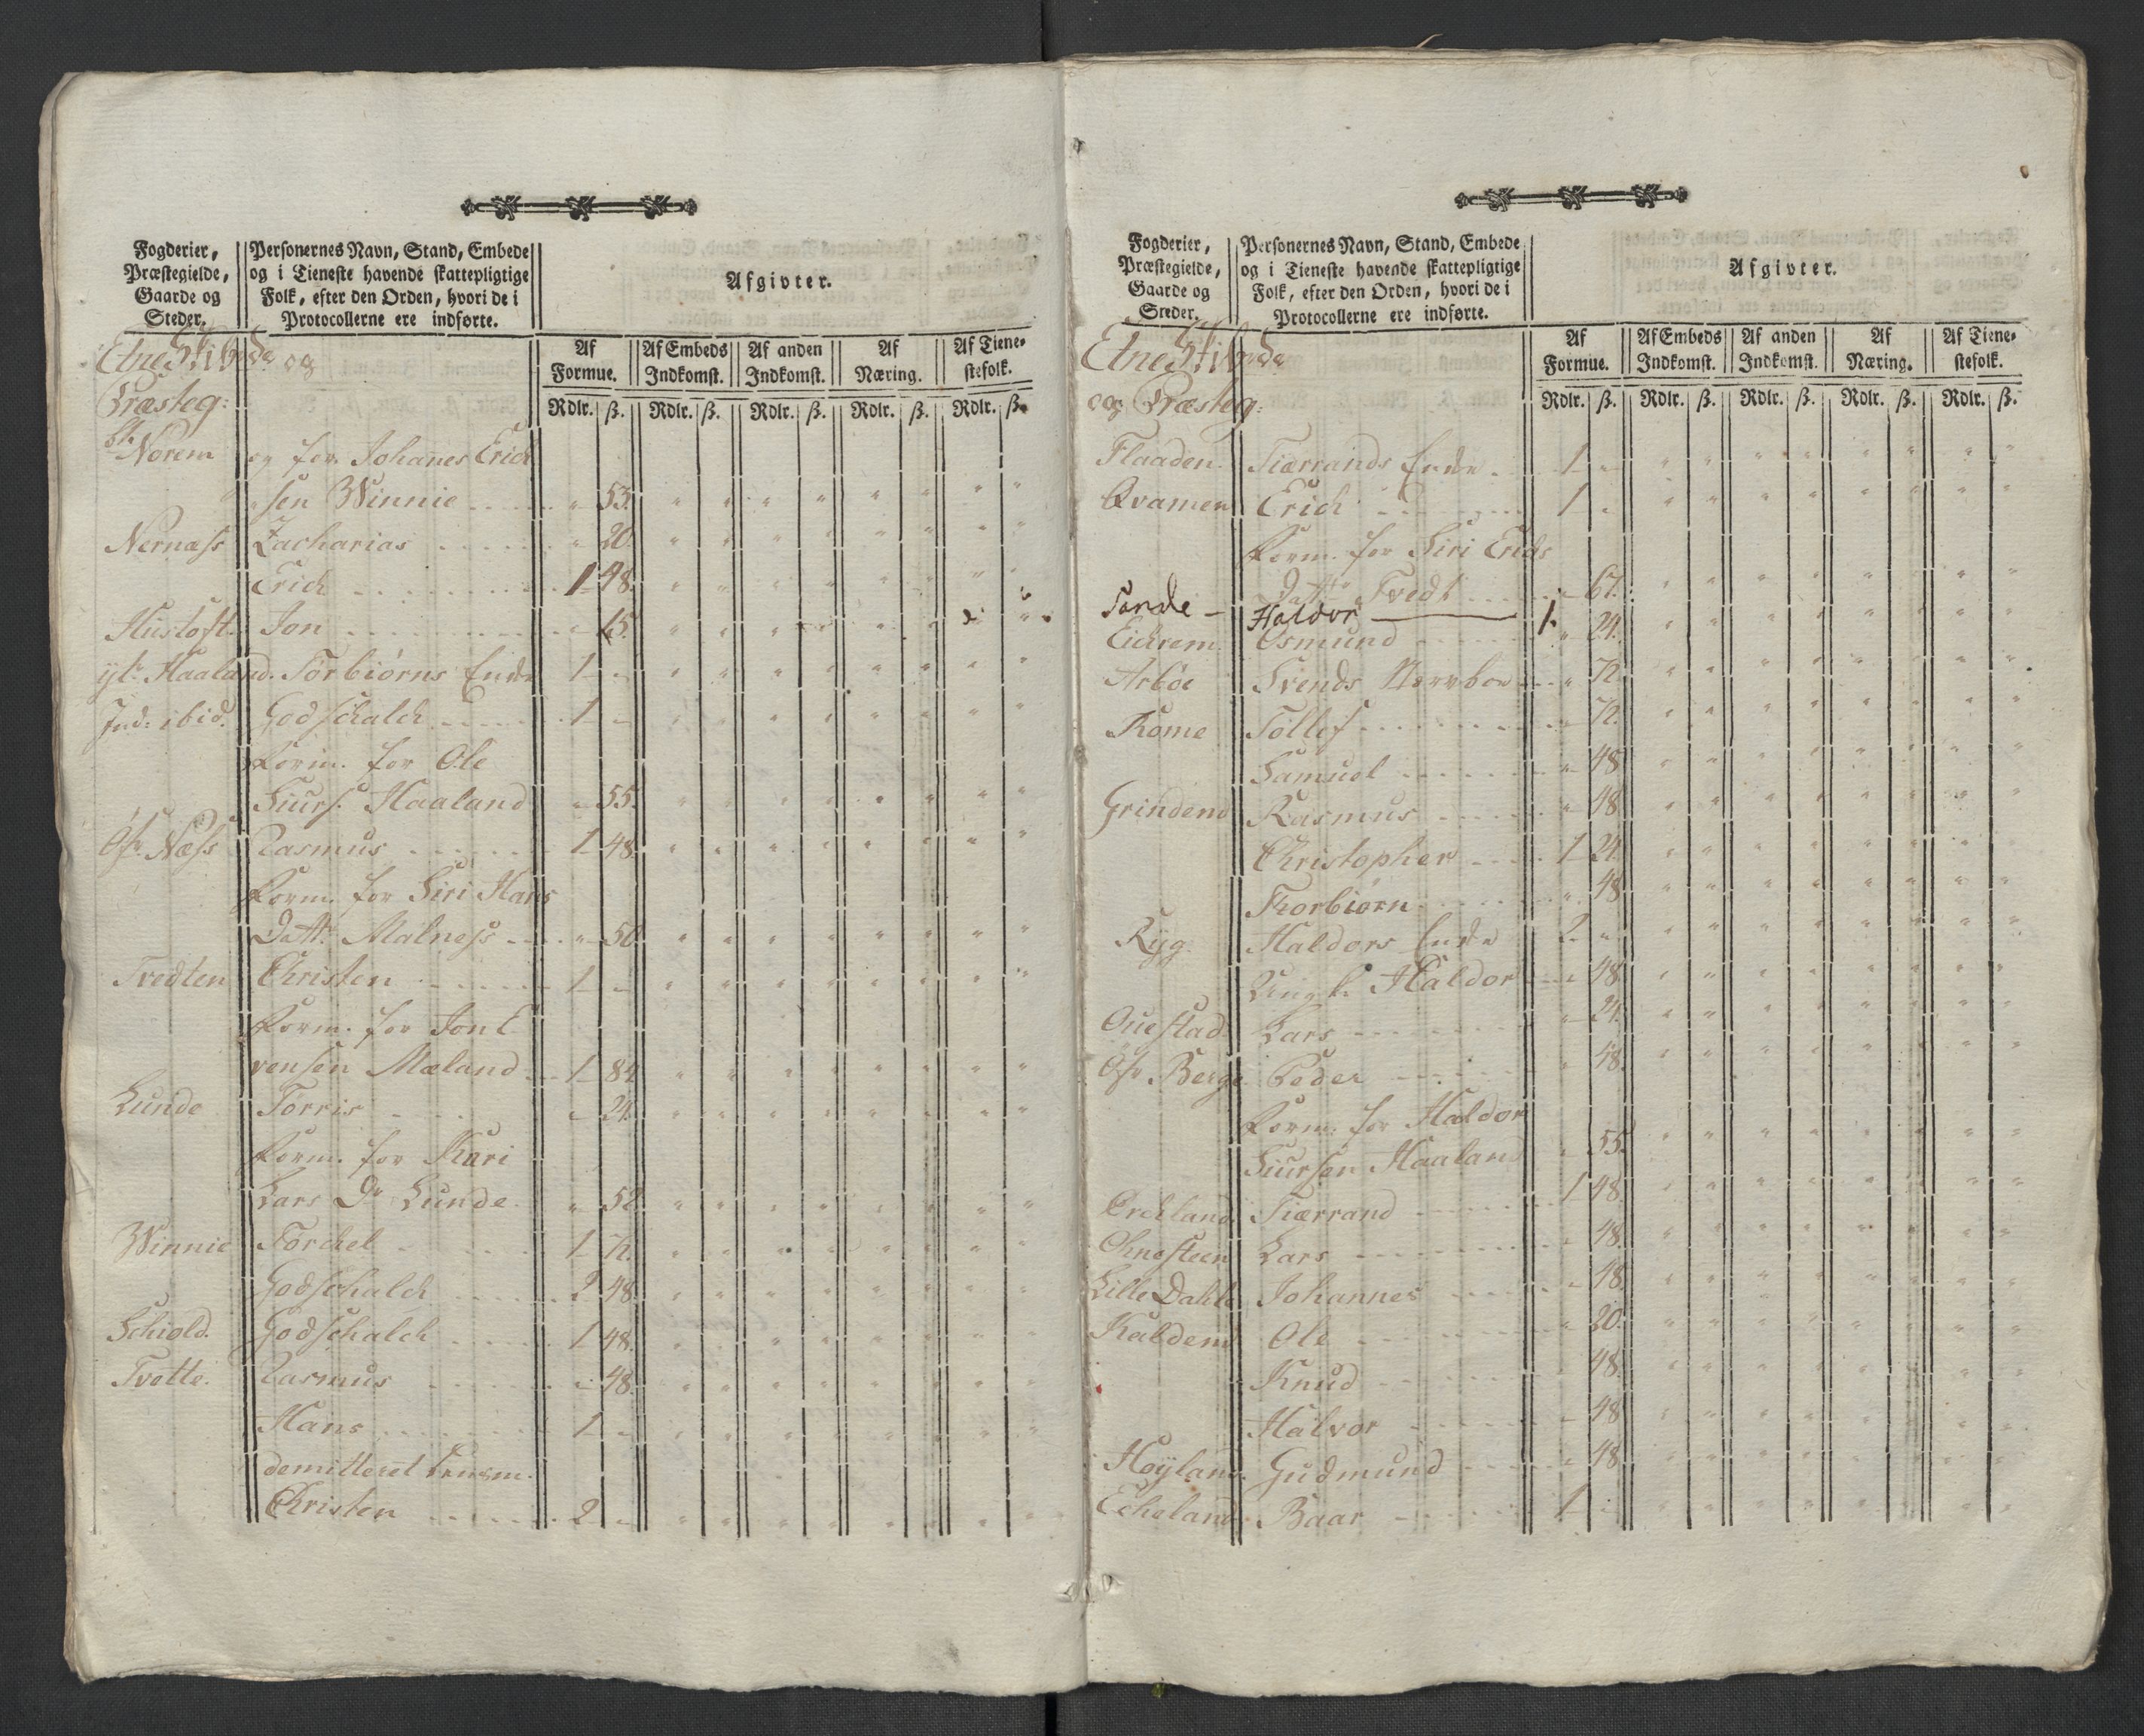 Fogderier,
Præstegielde,
Gaarde og
Steder.
Personernes Navn, Stand, Embede
og i Tieneste havende skattepligtige
Folk, efter den Orden, hvori de i
Protocollerne ere indførte.
Afgivter.
Af Formue.
Af Embeds Indkomst.
Af anden Indkomst.
Af Næring.
Af Tienestefolk.
Rdlr. ß. Rdlr. ß. Rdlr. ß. Rdlr. ß. Rdlr. ß.
Etne Skibrede og
Præsteg:
Norem og for Johanes Erich
sen Winnie - 53.
Nernæss Zacharias - 20.
Erich 1 48.
Hustoft. Jon - 15.
Haaland. Torbiørns Enke 1 -
Ind: ibid. Godschalch 1 -
Form. for Ole
Siurs. Haaland - 55.
Øfr Næss Rasmus 1 48.
Form. for Siri Hans
Dattr Malness - 50
Tvedten Christen 1 -
Form. for Jon E
vensen Mæland 1 84
Lunde Torris - 24.
Form. for Kari
Lars Dr Lunde - 52
Winnie Torchel 1 72.
Godschalch 2 48.
Schiold. Godschalch 1 48.
Tvette. Rasmus - 48.
Hans 1 -
demitteret Lensm.
Christen 2 -
Fogderier,
Præstegielde,
Gaarde og
Steder.
Personernes Navn, Stand, Embede
og i Tieneste havende skattepligtige
Folk, efter den Orden, hvori de i
Protocollerne ere indførte.
Afgivter.
Af Formue.
Af Embeds Indkomst.
Af anden Indkomst.
Af Næring.
Af Tienestefolk.
Rdlr. ß. Rdlr. ß. Rdlr. ß. Rdlr. ß. Rdlr. ß.
Etne Skibrede
og Præsteg:
Flaaden. Tiærrands Enke 1 -
Qvamen Erich 1 -
Form. for Siri Erichs
Dattr Tvedt - 67.
Sande - Haldor 1.
Eichrem. Osmund - 24.
Arbøe Svends - 72
Rome Tollef - 72.
Samuel - 48
Grindem Rasmus - 48
Christopher 1 24.
Thorbiørn - 48
Ryg. Haldors Enke 2 -
Ungk. Haldor - 48
Ouestad Lars - 24.
Øfr Berge Peder - 48.
Form. for Haldor
Siursen Haaland - 55.
Erchland Tiærrand 1 48.
Ohnesteen Lars - 48.
Lille Dahle Johannes - 48.
Kaldem Ole - 20.
Knud - 48
Halvor - 48
Høyland. Gudmund - 48
Echeland Baar 1 -